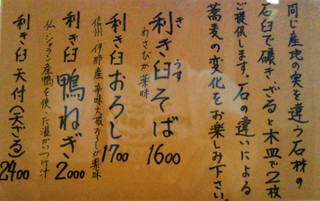 同じ産地の実を違う石材の
石臼で碾き、ざると木皿で2枚
ご提供します。石の違いによる
蕎麦の変化をお楽しみ下さい。
利き臼そば 1600
き うす
わさびが薬味
利き臼おろし 1700
信州 伊那産 辛味大根おろしが薬味
利き臼 鴨ねぎ 2000
仏・シャラン産鴨を使った温かいつけ汁
利き臼 天付(天ざる) 2400